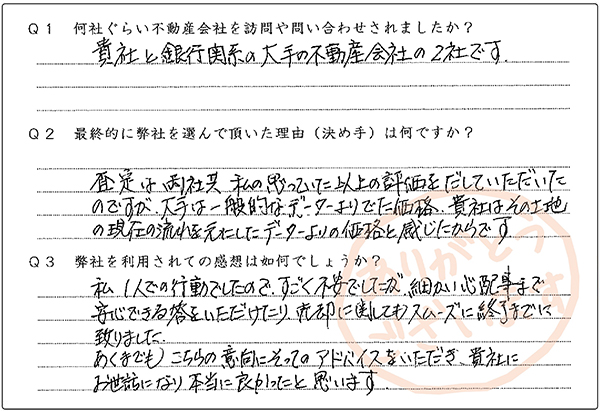 Q1 何社ぐらい不動産会社を訪問や問い合わせされましたか？
貴社と銀行関系の大手の不動産会社の2社です.
Q2 最終的に弊社を選んで頂いた理由（決め手）は何ですか？
査定は両社共 私の思っていた以上の評価をだしていただいた
のですが、大手は一般的なデーターよりでた価格、貴社はその土地
の現在の流れを元にしたデーターよりの価格と感じたからです
Q3 弊社を利用されての感想は如何でしょうか？
私 1人での行動でしたので、すごく不安でしたが、細かい心配事まで
安心できる答をいただけたり 売却に関してもスムーズに終了までに
致りました.
あくまでも）こちらの意向にそってのアドバイスをいただき、貴社に
お世話になり本当に良かったと思います.
ありがとう
ございます